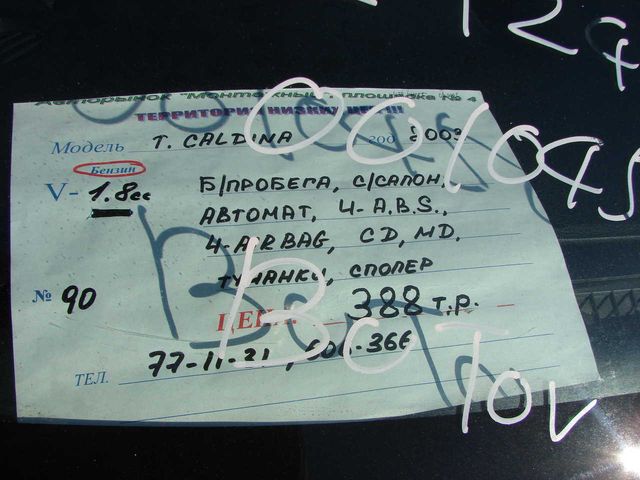 124
001045
Авторынок "Монтажный" площадке № 4
ТЕРРИТОРИЯ НИЗКИХ ЦЕН!!!
Модель T. CALDINA год 2003
Бензин
V- 1.8cc
Б/ПРОБЕГА, С/САЛОН,
АВТОМАТ, 4-A.B.S.,
4-AIRBAG, CD, MD,
ТУМАНКИ, СПОЛЕР
№ 90
ЦЕНА 388 т.р.
ТЕЛ. 77-11-21, 606-366
Вот
TOV